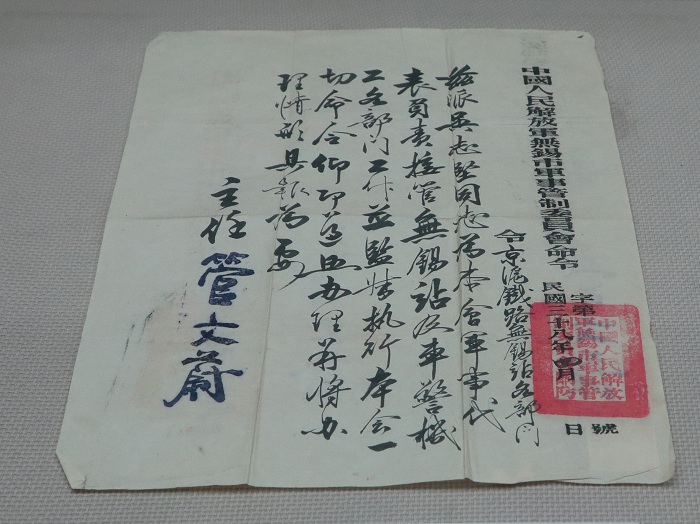 中國人民解放軍無錫市軍事管制委員會命令
字第
號
民國三十八年四月
日
令京滬鐵路無錫站各部门
兹派吴志堅同志为本会軍事代
表負责接管無錫站及車警機
工各部门工作並監督执行本会一
切命令仰即遵照办理并将办
理情形具報为要
主任管文蔚
中國人民解放
軍無錫市軍事管